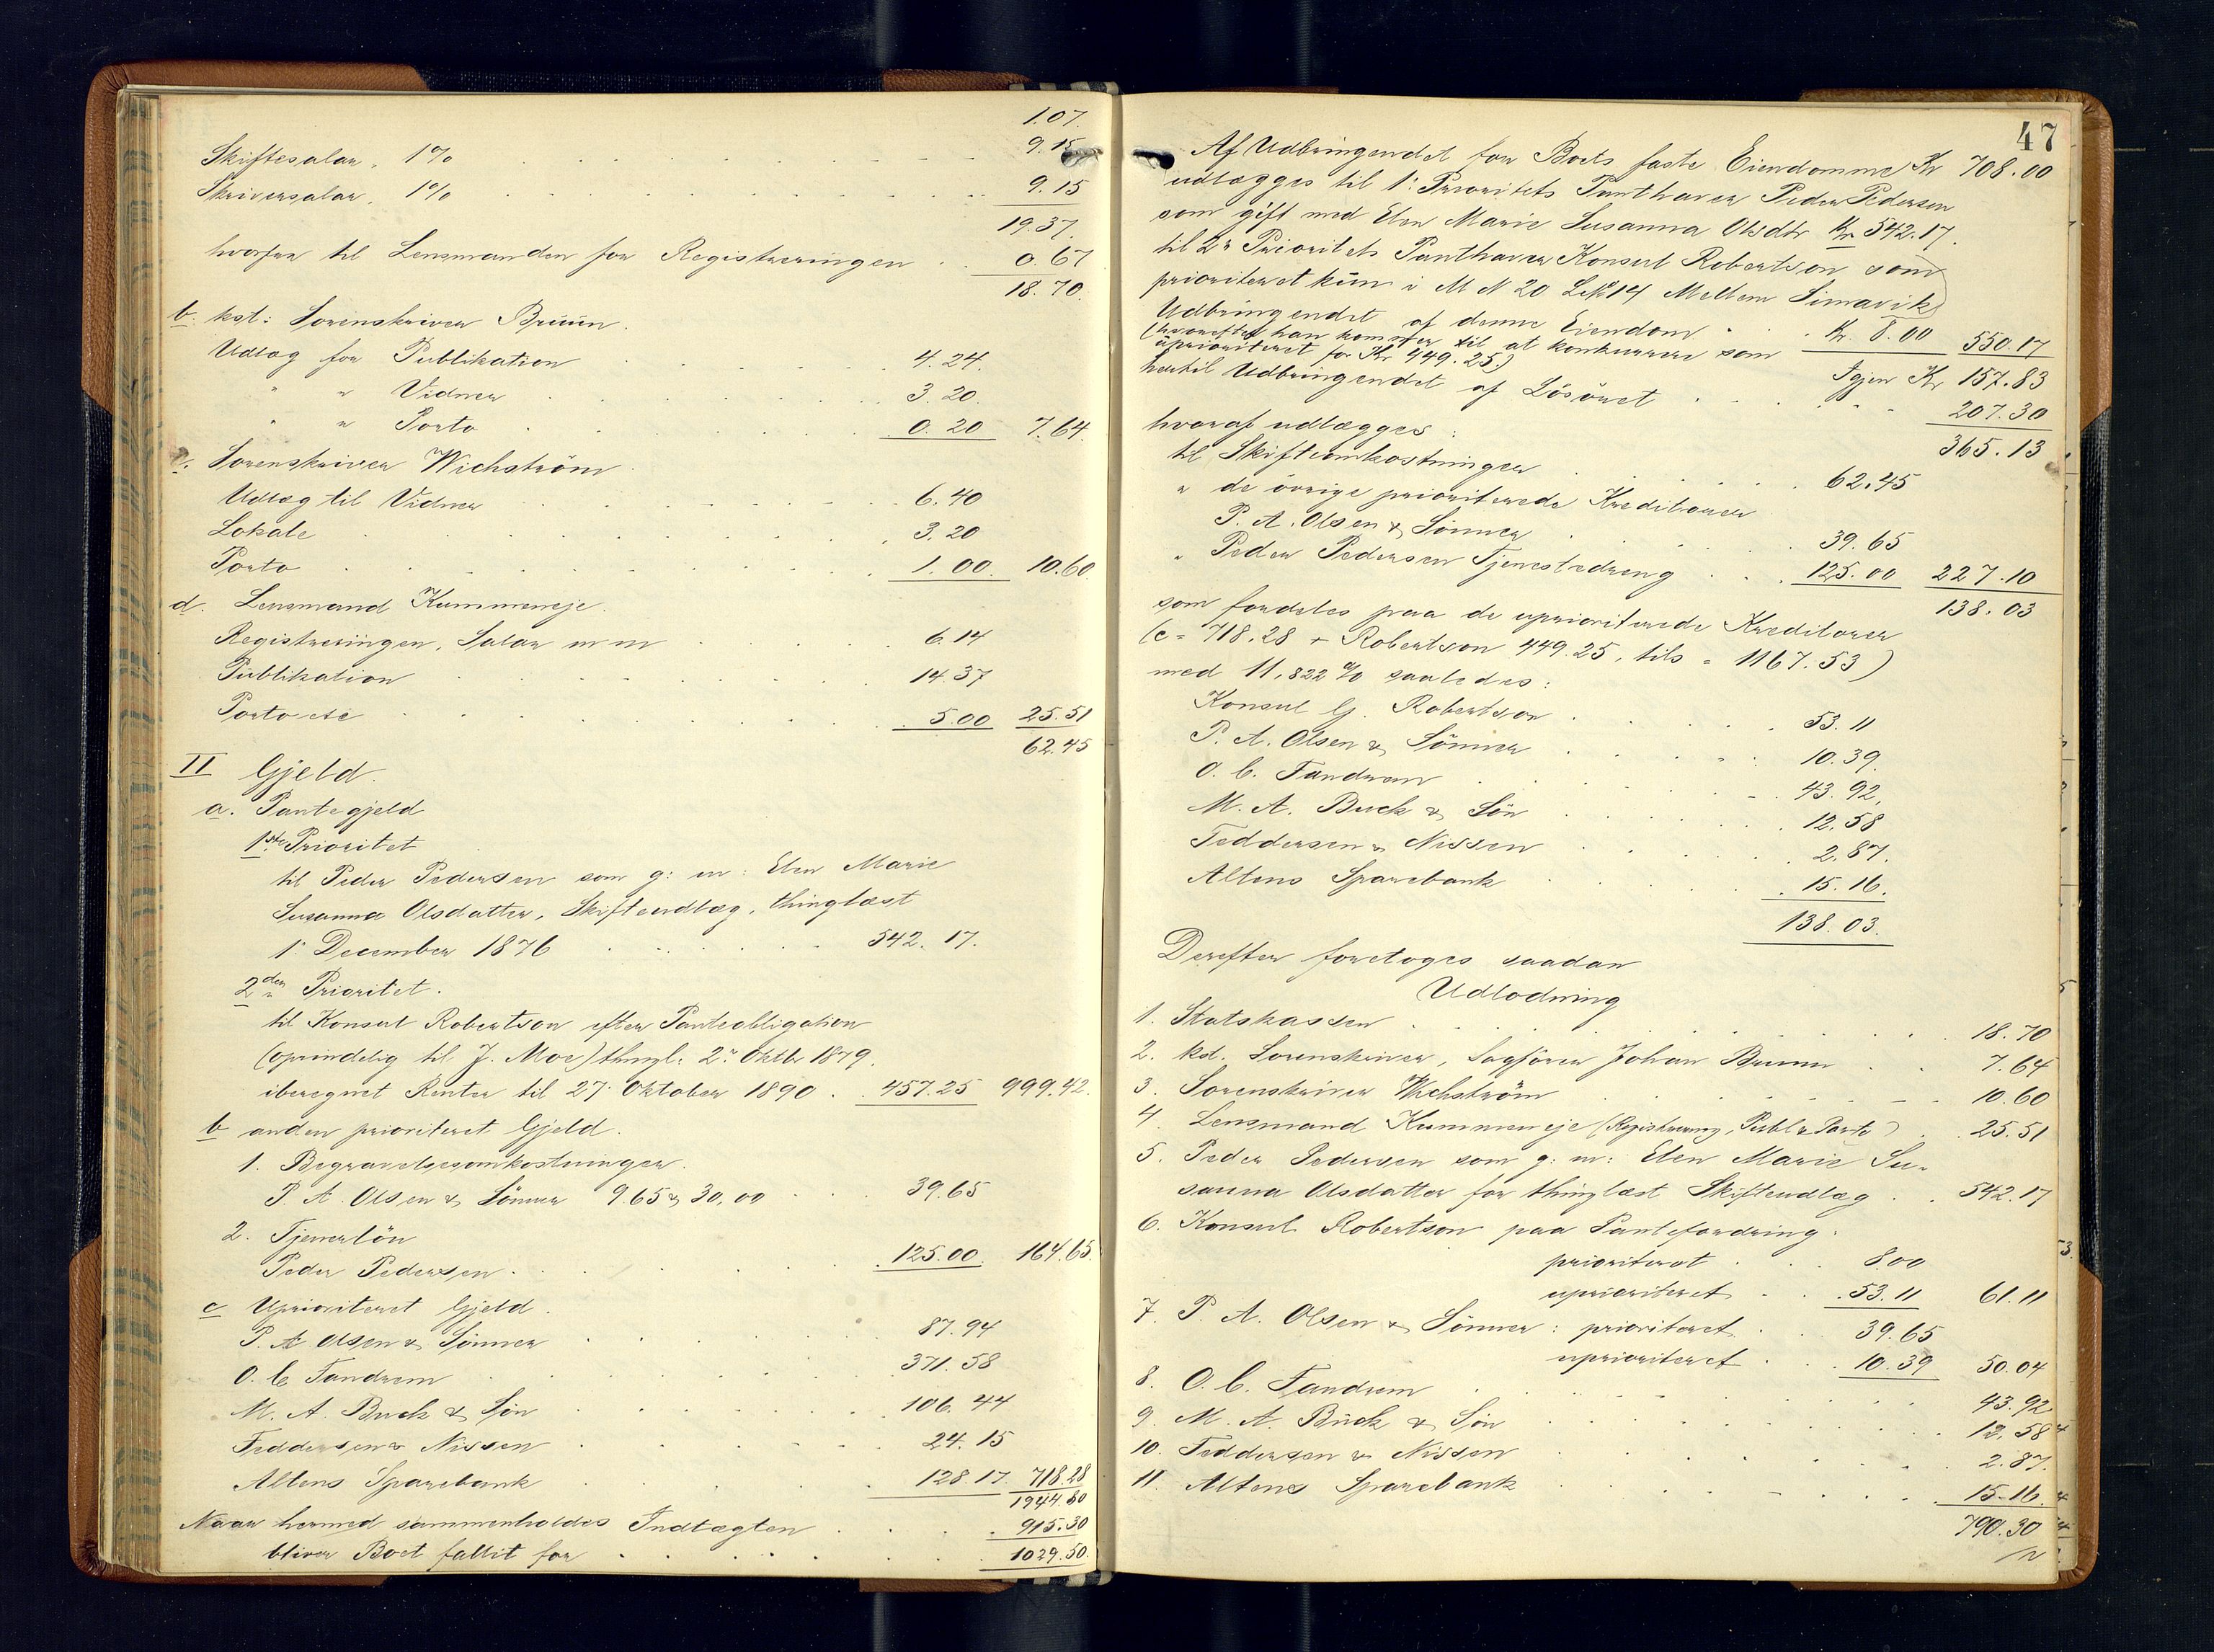 1.07.
Skiftesalar, 1% 9.15
Skriversalar, 1% 9.15
19.37.
hvorfra til Lensmanden for Registreringen 0.67
18.70.
b. kst: Sorenskriver Bruun.
Udlæg for Publikation 4.24.
" " Vidner 3.20
" " Porto 0.20 7.64.
c. Sorenskriver Wichström
Udlæg til Vidner 6.40
Lokale 3.20
Porto 1.00. 10.60.
d. Lensmand Kummeneje.
Registreringen, Salar m m 6.14
Publikation 14.37
Porto etc 5.00 25.51
62.45
II Gjeld.
a. Pantegjeld
1ste Prioritet
til Peder Pedersen som g: m: Elen Marie
Susanna Olsdatter, Skifteudlæg, thinglæst
1. December 1876 542.17.
2den Prioritet.
til Konsul Robertson efter Panteobligation
(oprindelig til J. Moe) thingl: 2n Oktbr 1879.
iberegnet Renter til 27. Oktober 1890. 457.25 999.42.
b anden prioriteret Gjeld.
1. Begravelsesomkostninger.
P. A. Olsen & Sönner 9.65 & 30.00 39.65
2. Tjenerlön
Peder Pedersen 125.00. 164.65.
c Uprioriteret Gjeld.
P. A. Olsen & Sönner 87.94
O. C. Fandrem 371.58
M. A. Buck & Sön 106.44
Feddersen & Nissen 24.15
Altens Sparebank 128.17. 718.28
1944.80
Naar hermed sammenholdes Indtægten 915.30
bliver Boet fallit for 1029.50.
47
Af Udbringendet for Boets faste Eiendomme Kr 708.00
udlægges til 1. Prioritets Panthaver Peder Pedersen
som gift med Elen Marie Susanna Olsdtr Kr. 542.17.
til 2n Prioritets Panthaver Konsul Robertson som
prioriteret kun i M N 20 LN 14 Mellem Simavik
Udbringendet af denne Eiendom Kr. 8.00 550.17
(hvorefter han kommer til at konkurrere som
uprioriteret for Kr 449.25.) Igjen Kr 157.83
hertil Udbringendet af Lösöret 207.30
365.13
hvoraf udlægges:
til Skifteomkostninger 62.45
" de övrige prioriterede Kreditorer
P. A. Olsen & Sönner 39.65
" Peder Pedersen Tjenestedreng 125.00 227.10
138.03
som fordeles paa de uprioriterede Kreditorer
(c = 718.28 + Robertson 449.25, tils = 1167.53)
med 11,822 % saaledes:
Konsul G. Robertson 53.11
P. A. Olsen & Sönner 10.39.
O. C. Fandrem 43.92,
M. A. Buck & Sön 12.58
Feddersen & Nissen 2.87.
Altens Sparebank 15.16.
138.03.
Derefter foretoges saadan
Udlodning
1. Statskassen 18.70
2. kst. Sorenskriver, Sagförer Johan Bruun 7.64
3. Sorenskriver Wichström 10.60
4. Lensmand Kummeneje (Registrering, Publ & Porto) 25.51
5. Peder Pedersen som g: m: Elen Marie Su-
sanna Olsdatter for thinglæst Skifteudlæg 542.17
6. Konsul Robertson paa Pantefordring:
prioriteret 8.00
uprioriteret 53.11 61.11
7. P. A. Olsen & Sönner: prioriteret 39.65
uprioriteret 10.39 50.04
8. O. C. Fandrem 43.92
9. M. A. Buck & Sön 12.58
10. Feddersen & Nissen 2.87.
11. Altens Sparebank 15.16.
790.30